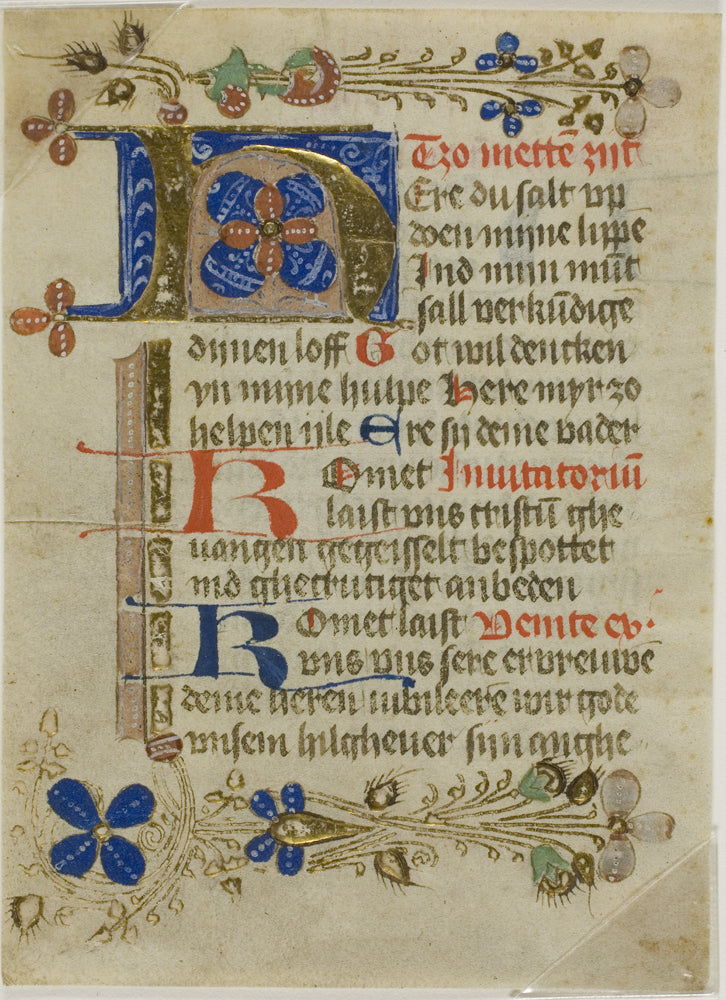 Tzo mettē zijt
HEre du salt vp
doen mijne lippe
Ind mijn mūt
sall verkūdige
dijnen loff Got wil dencken
yn mijne hulpe Here myr zo
helpen ijle Ere sij deme vader
Komet Inuitatoriū
laist vns cristū ghe
uangen gegeisselt bespottet
ind ghecrutiget anbeden
Komet laist Venite ex.
vns vns sere ervreuwe
deme heren iubileere wir gode
vnsem hilgheuer sijn anghe